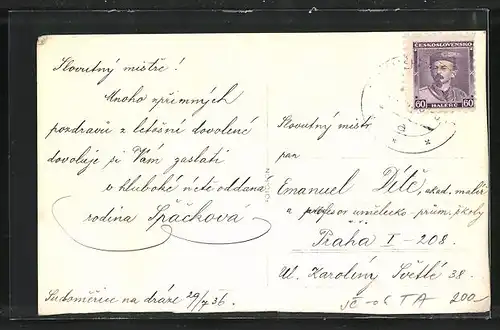 Slovutný mistře!
Mnoho upřímných
pozdravů z letošní dovolené
dovoluje si Vám zaslati
v hluboké úctě oddaná
rodina Špačková
Sudoměřice na dráze 29/7 36.
ČESKOSLOVENSKO
60 HALÉŘŮ 60
Slovutný mistr
pan
Emanuel Dítě, akad. malíř
a profesor umělecko-prům. školy
Praha I - 208.
Ul. Karoliny Světlé 38.
TA 200,-